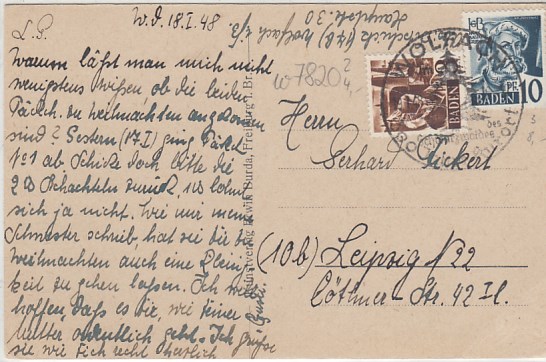 W.d. 18.I.48
L.G.
Warum läßt man mich nicht
wenigstens wissen ob die beiden
Päckch. zu Weihnachten angekommen
sind? Gestern (17.I) ging Päckch.
No 1 ab. Schicke doch bitte die
2 Schachteln zurück, es lohnt
sich ja nicht. Wie mir meine
Schwester schrieb, hat sie die
Weihnachten auch eine Kleinig-
keit zu gehen lassen. Ich will
hoffen, daß es Dir, wie Deiner
Mutter ordentlich geht. Ich grüße
sie wie Dich recht herzlich
(17b) Wolfach
Hauptstr. 30
W 7820
Kunstverlag Erwin Burda, Freiburg i. Br.
BADEN
BADEN
PF 10
WOLFACH
Herrn
Gerhard
(10b) Leipzig N 22
Cöthner-Str. 42 II.